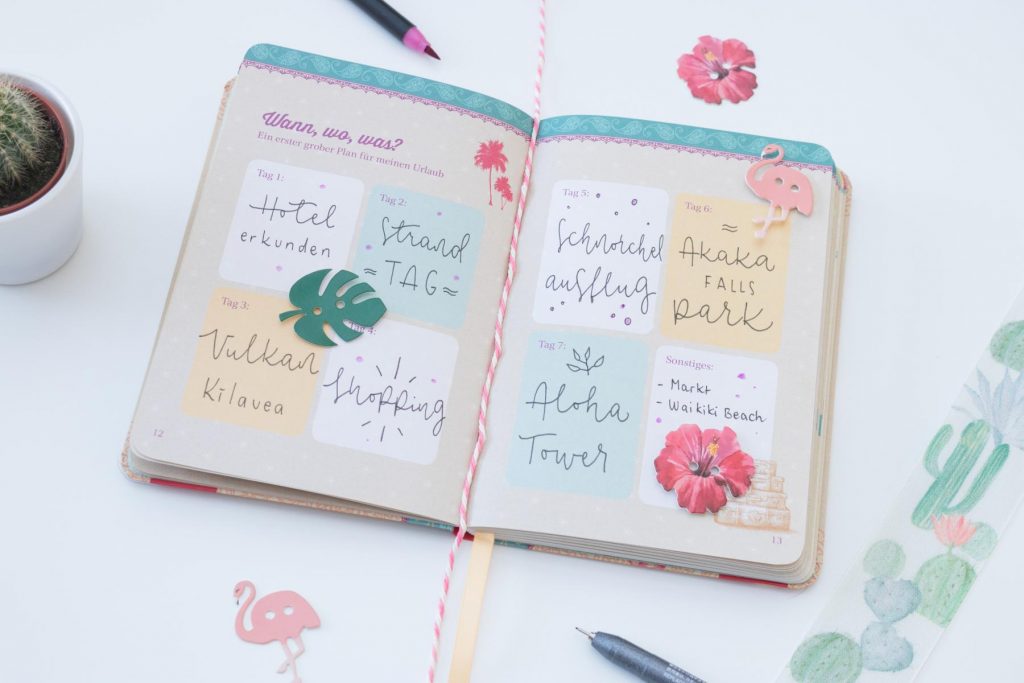 Wann, wo, was?
Ein erster grober Plan für meinen Urlaub
Tag 1:
Hotel
erkunden
Tag 2:
Strand
≈ TAG ≈
Tag 3:
Vulkan
Kilavea
Tag 4:
Shopping
12
Tag 5:
Schnorchel
ausflug
Tag 6:
≈
Akaka
FALLS
park
Tag 7:
Aloha
Tower
Sonstiges:
- Markt
- Waikiki Beach
13